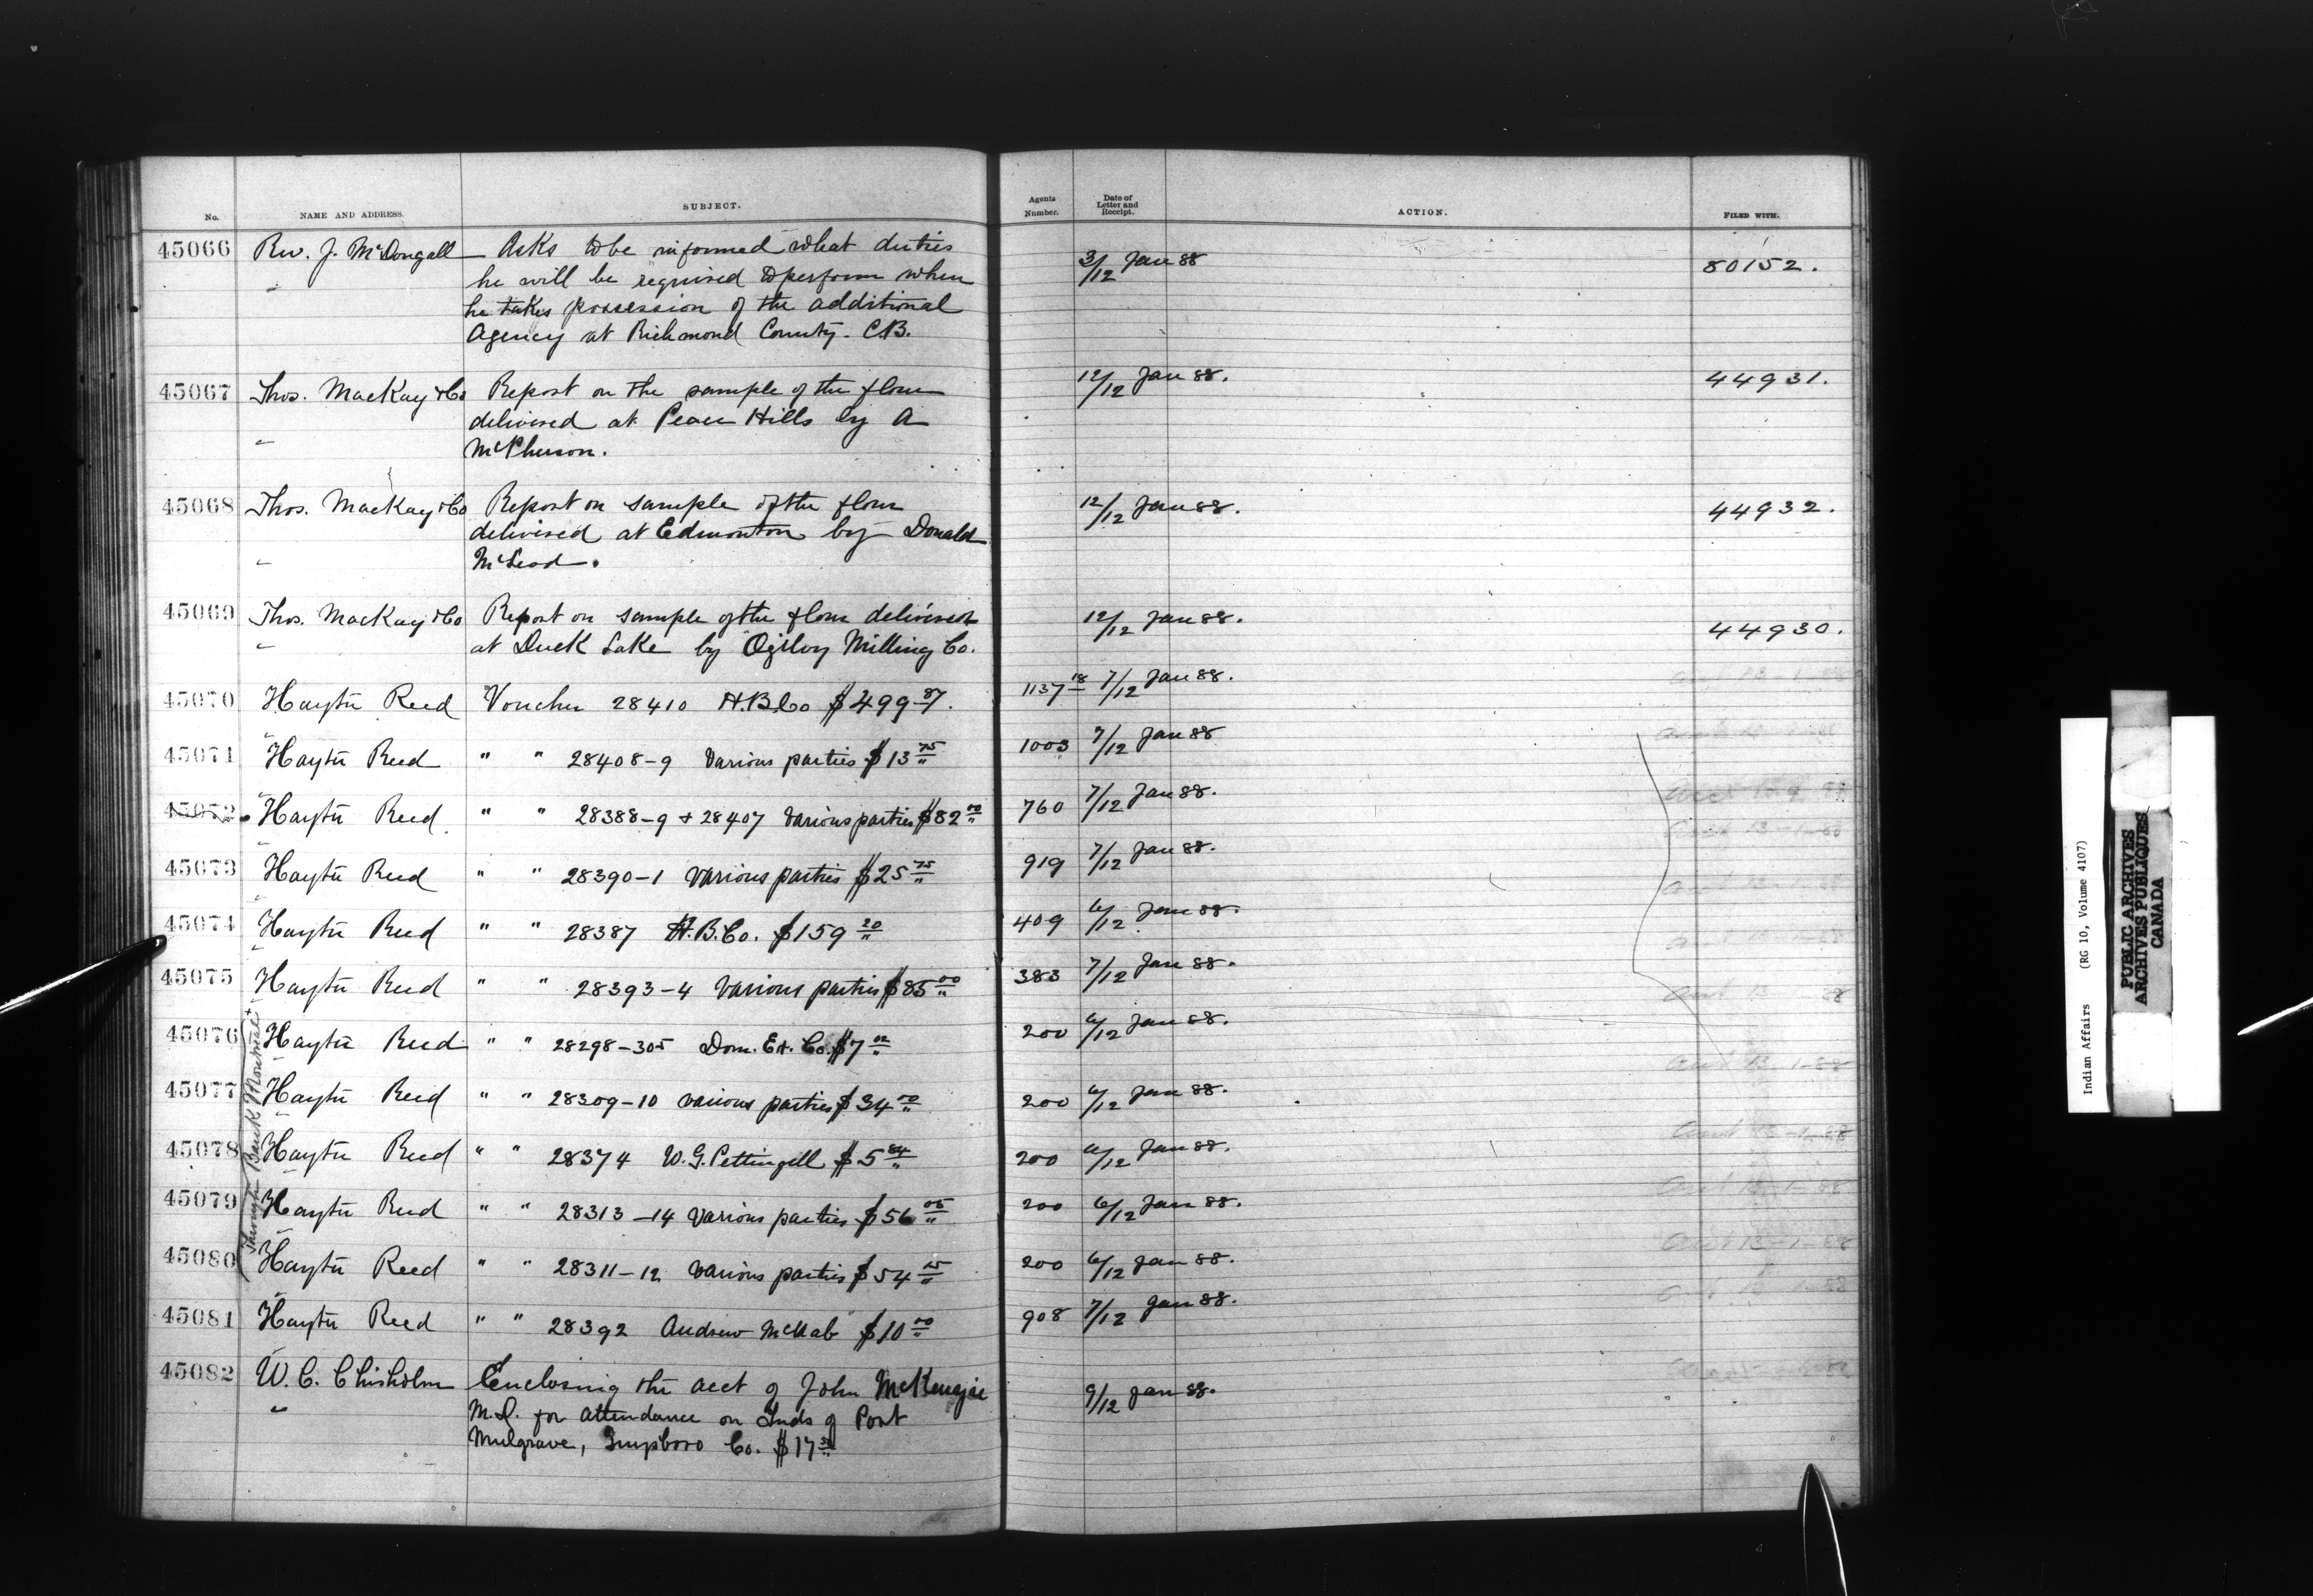 No. NAME AND ADDRESS. SUBJECT. Agents Number. Date of Letter and Receipt. ACTION. FILED WITH.
45066 Rev. J. McDougall Asks to be informed what duties 3/12 Jan 88 80152.
" he will be required to perform when
he takes possession of the additional
Agency at Richmond County. C.B.
45067 Thos. MacKay & Co Report on the sample of the flour 12/12 Jan 88. 44931.
" delivered at Peace Hills by A
McPherson.
45068 Thos. MacKay & Co Report on sample of the flour 12/12 Jan 88. 44932.
delivered at Edmonton by Donald
" McLeod.
45069 Thos. MacKay & Co Report on sample of the flour delivered 12/12 Jan 88. 44930.
" at Duck Lake by Ogilvy Milling Co.
45070 Hayter Reed Voucher 28410 H.B.Co $499 87. 1137 18 7/12 Jan 88.
45071 Hayter Reed " " 28408-9 Various parties $13 75 1003 7/12 Jan 88
45072 Hayter Reed " " 28388-9 + 28407 Various parties $82 00 760 7/12 Jan 88.
45073 Hayter Reed " " 28390-1 Various parties $25 75 919 7/12 Jan 88.
45074 Hayter Reed " " 28387 H.B.Co. $159 20 409 6/12 Jan 88.
45075 Hayter Reed " " 28393-4 Various parties $85 00 383 7/12 Jan 88.
45076 Hayter Reed " " 28298-305 Dom. Ex. Co. $7 200 6/12 Jan 88.
45077 Hayter Reed " " 28309-10 various parties $34 00 200 6/12 Jan 88.
45078 Hayter Reed " " 28374 W.G. Pettingell $5 84 200 6/12 Jan 88.
45079 Hayter Reed " " 28313-14 Various parties $56 05 200 6/12 Jan 88.
45080 Hayter Reed " " 28311-12 Various parties $54 200 6/12 Jan 88.
45081 Hayter Reed " " 28392 Andrew McNab $10 00 908 7/12 Jan 88.
Through Bank Montreal
45082 W. C. Chisholm Enclosing the acct of John McKenzie 9/12 Jan 88.
" M.D. for attendance on Inds of Port
Mulgrave, Co. $17
Indian Affairs (RG 10, Volume 4107)
PUBLIC ARCHIVES
ARCHIVES PUBLIQUES
CANADA